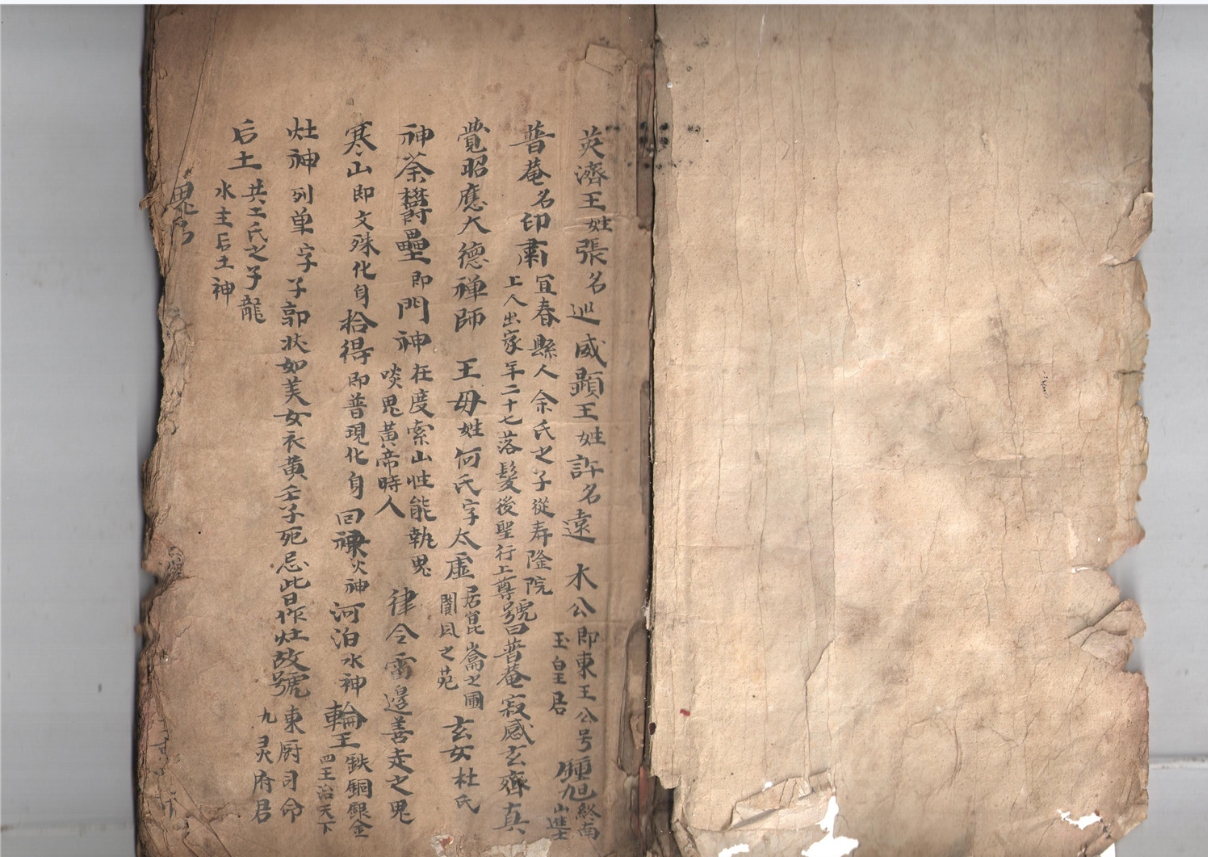 英濟王姓張名巡威顕王姓許名遠 木公即東王公号玉皇居 鍾馗終南山進士
普菴名印肅宜春縣人余氏之子從寿隆院上人出家年二十七落髮後聖行上尊號曰普菴寂感玄齊真
覺昭應大德禅師 王母姓何氏字太虛居崑崙之圃閬风之苑 玄女杜氏
神荼欝壘即門神在度索山性能執鬼啖鬼黄帝時人 律令雷邊善走之鬼
寒山即文殊化身拾得即普現化身回祿火神河泊水神輪王鉄銅銀金四王治天下
灶神列单字子郭狀如美女衣黄壬子死忌此日作灶故號東厨司命九灵府君
后土共工氏之子龍水主后土神